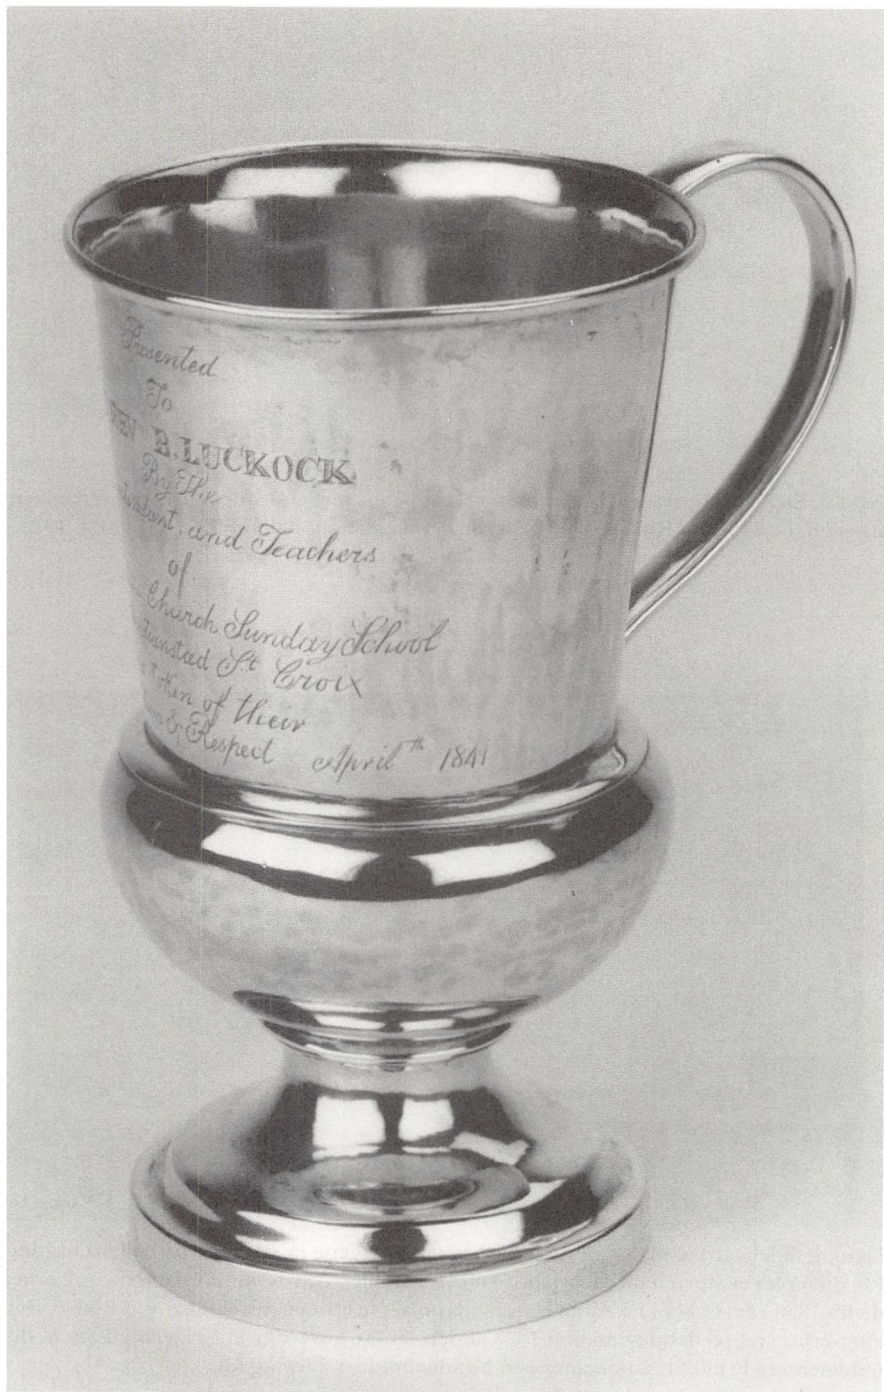 Presented
To
REV B. LUCKOCK
By The
and Teachers
of
Church Sunday School
St Croix
Token of their
& Respect April th 1841